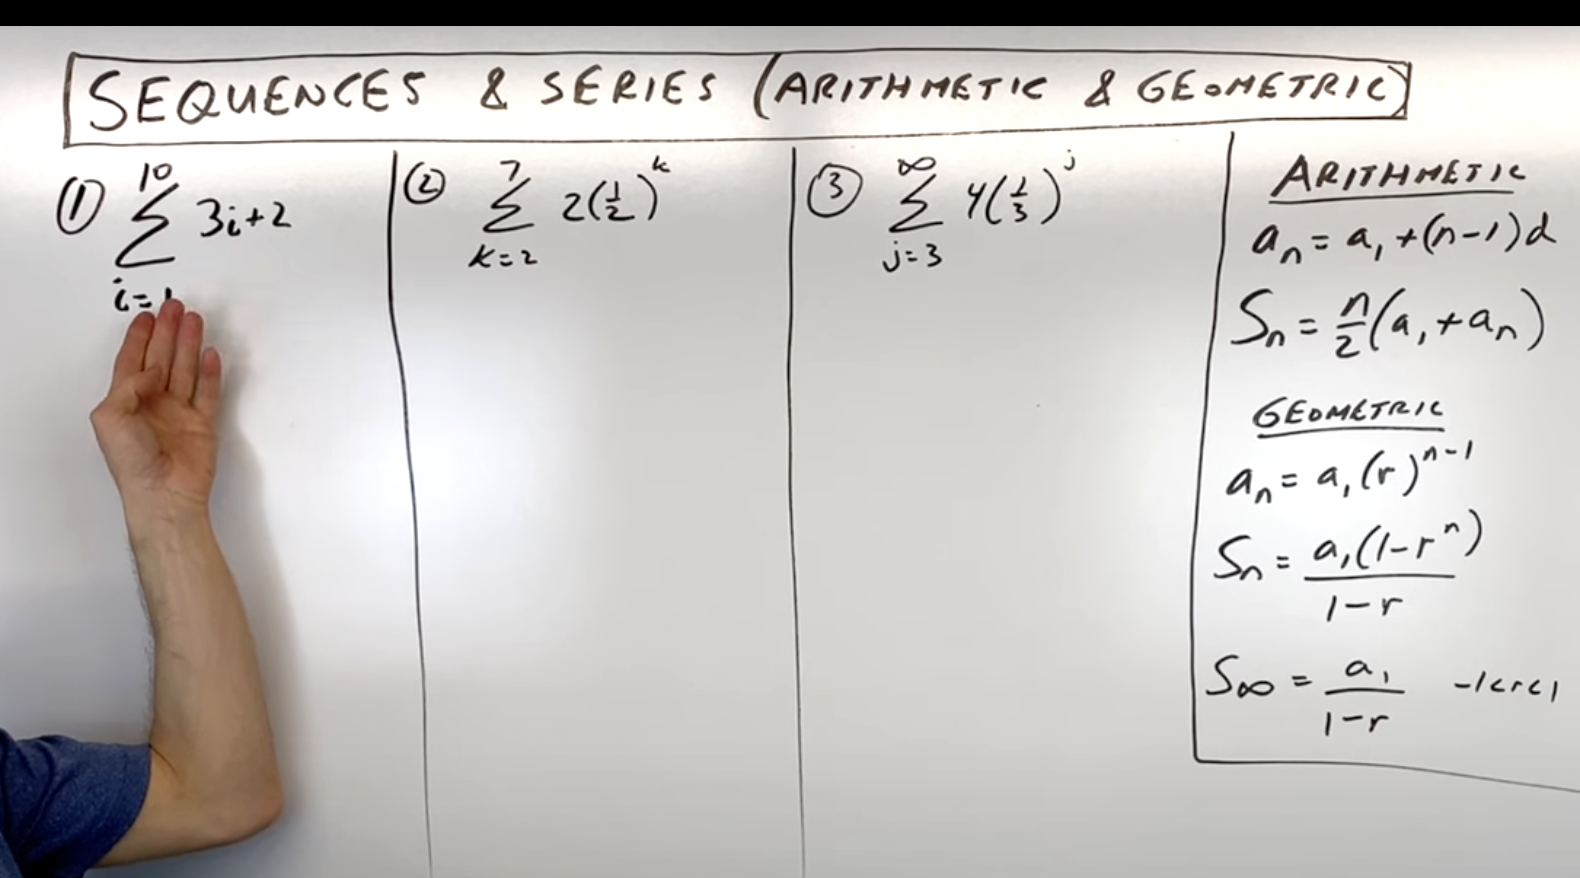 SEQUENCES & SERIES (ARITHMETIC & GEOMETRIC)
① 10 ∑ 3i+2
i=1
② 7 ∑ 2(1/2)^k
k=2
③ ∞ ∑ 4(1/3)^j
j=3
ARITHMETIC
a_n = a_1 + (n-1)d
S_n = n/2 (a_1 + a_n)
GEOMETRIC
a_n = a_1 (r)^{n-1}
S_n = a_1(1-r^n) / 1-r
S_∞ = a_1 / 1-r -1<r<1